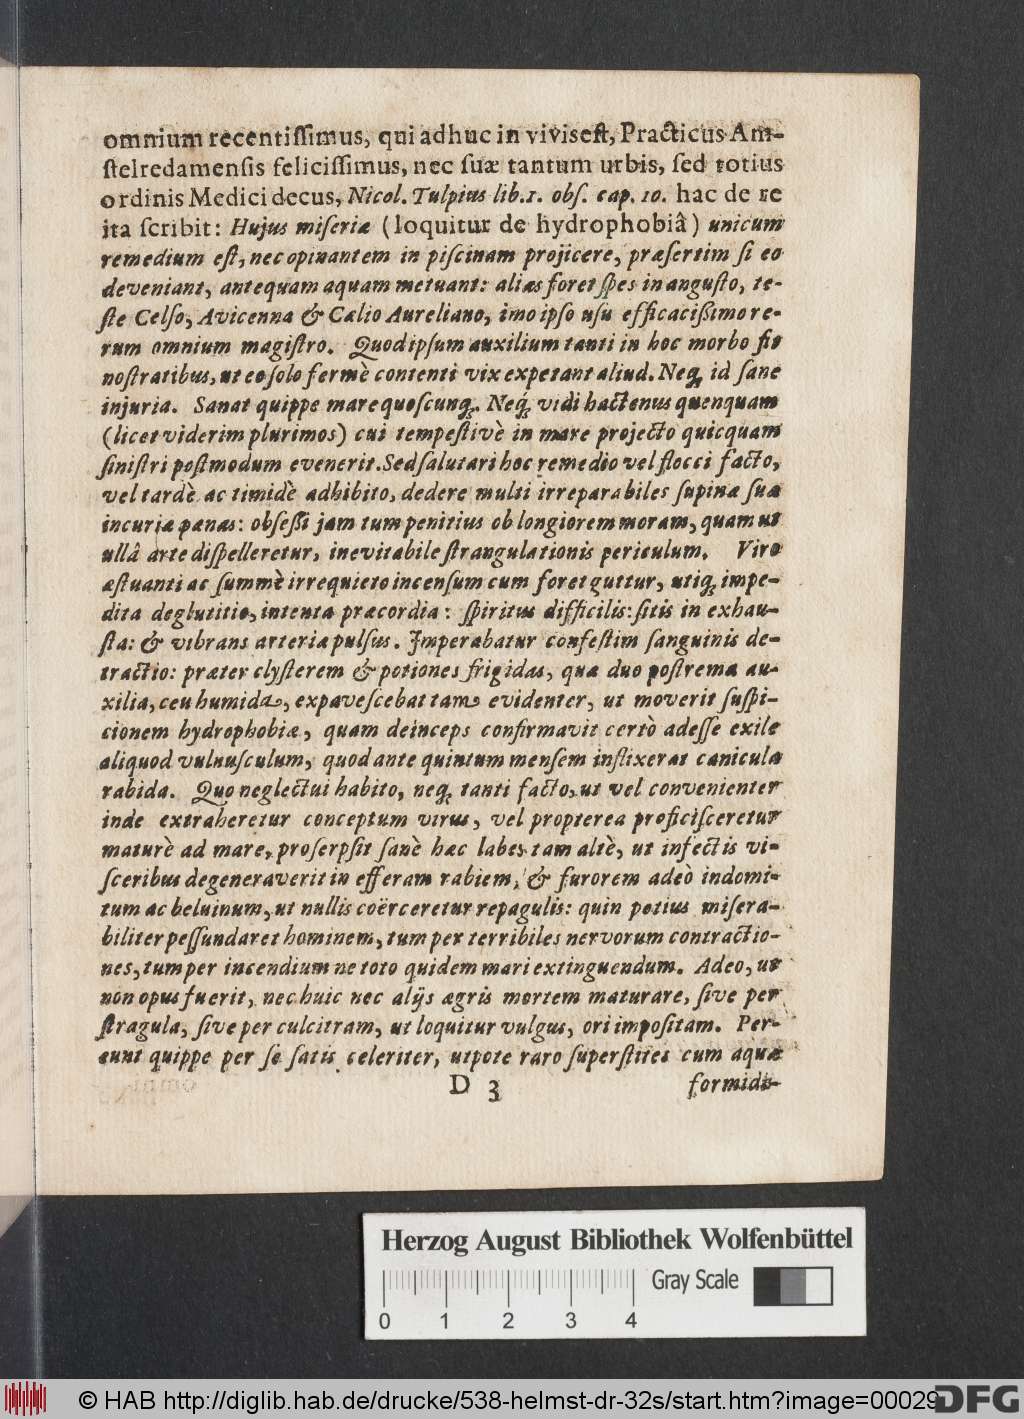 omnium recentiſſimus, qui adhuc in vivis eſt, Practicus Am-
ſtelredamenſis feliciſſimus, nec ſuæ tantum urbis, ſed totius
ordinis Medici decus, Nicol. Tulpius lib.1. obſ. cap. 10. hac de re
ita ſcribit: Hujus miſeriæ (loquitur de hydrophobiâ) unicum
remedium eſt, nec opinantem in piſcinam projicere, præſertim ſi eo
deveniant, antequam aquam metuant: aliàs foret ſpes in anguſto, te-
ſte Celſo, Avicenna & Cælio Aureliano, imo ipſo uſu efficacißimo re-
rum omnium magiſtro. Quod ipſum auxilium tanti in hoc morbo fit
noſtratibus, ut eo ſolo fermè contenti vix expetant aliud. Neq; id ſane
injuria. Sanat quippe mare quoſcunq;. Neq; vidi hactenus quenquam
(licet viderim plurimos) cui tempeſtivè in mare projecto quicquam
ſiniſtri poſtmodum evenerit. Sed ſalutari hoc remedio vel flocci facto,
vel tardè ac timidè adhibito, dedere multi irreparabiles ſupinæ ſuæ
incuriæ pœnas: obſeßi jam tum penitius ob longiorem moram, quam ut
ullâ arte diſpelleretur, inevitabile ſtrangulationis periculum. Viro
æſtuanti ac ſummè irrequieto incenſum cum foret guttur, utiq; impe-
dita deglutitio, intenta præcordia: ſpiritus difficilis: ſitis in exhau-
ſta: & vibrans arteria pulſus. Imperabatur confeſtim ſanguinis de-
tractio: præter clyſterem & potiones frigidas, quæ duo poſtrema au-
xilia, ceu humida, expaveſcebat tam evidenter, ut moverit ſuſpi-
cionem hydrophobiæ, quam deinceps confirmavit certò adeſſe exile
aliquod vulnuſculum, quod ante quintum menſem inflixerat canicula
rabida. Quo neglectui habito, neq; tanti facto, ut vel convenienter
inde extraheretur conceptum virus, vel propterea proficiſceretur
maturè ad mare, proſerpſit ſanè hæc labes tam altè, ut infectis vi-
ſceribus degeneraverit in efferam rabiem, & furorem adeò indomi-
tum ac beluinum, ut nullis coërceretur repagulis: quin potius miſera-
biliter peſſundaret hominem, tum per terribiles nervorum contractio-
nes, tum per incendium ne toto quidem mari extinguendum. Adeo, ut
non opus fuerit, nec huic nec alijs ægris mortem maturare, ſive per
ſtragula, ſive per culcitram, ut loquitur vulgus, ori impoſitam. Per-
eunt quippe per ſe ſatis celeriter, utpote raro ſuperſtites cum aquæ
D 3 formidi-
Herzog August Bibliothek Wolfenbüttel
Gray Scale
0 1 2 3 4
© HAB http://diglib.hab.de/drucke/538-helmst-dr-32s/start.htm?image=00029
DFG